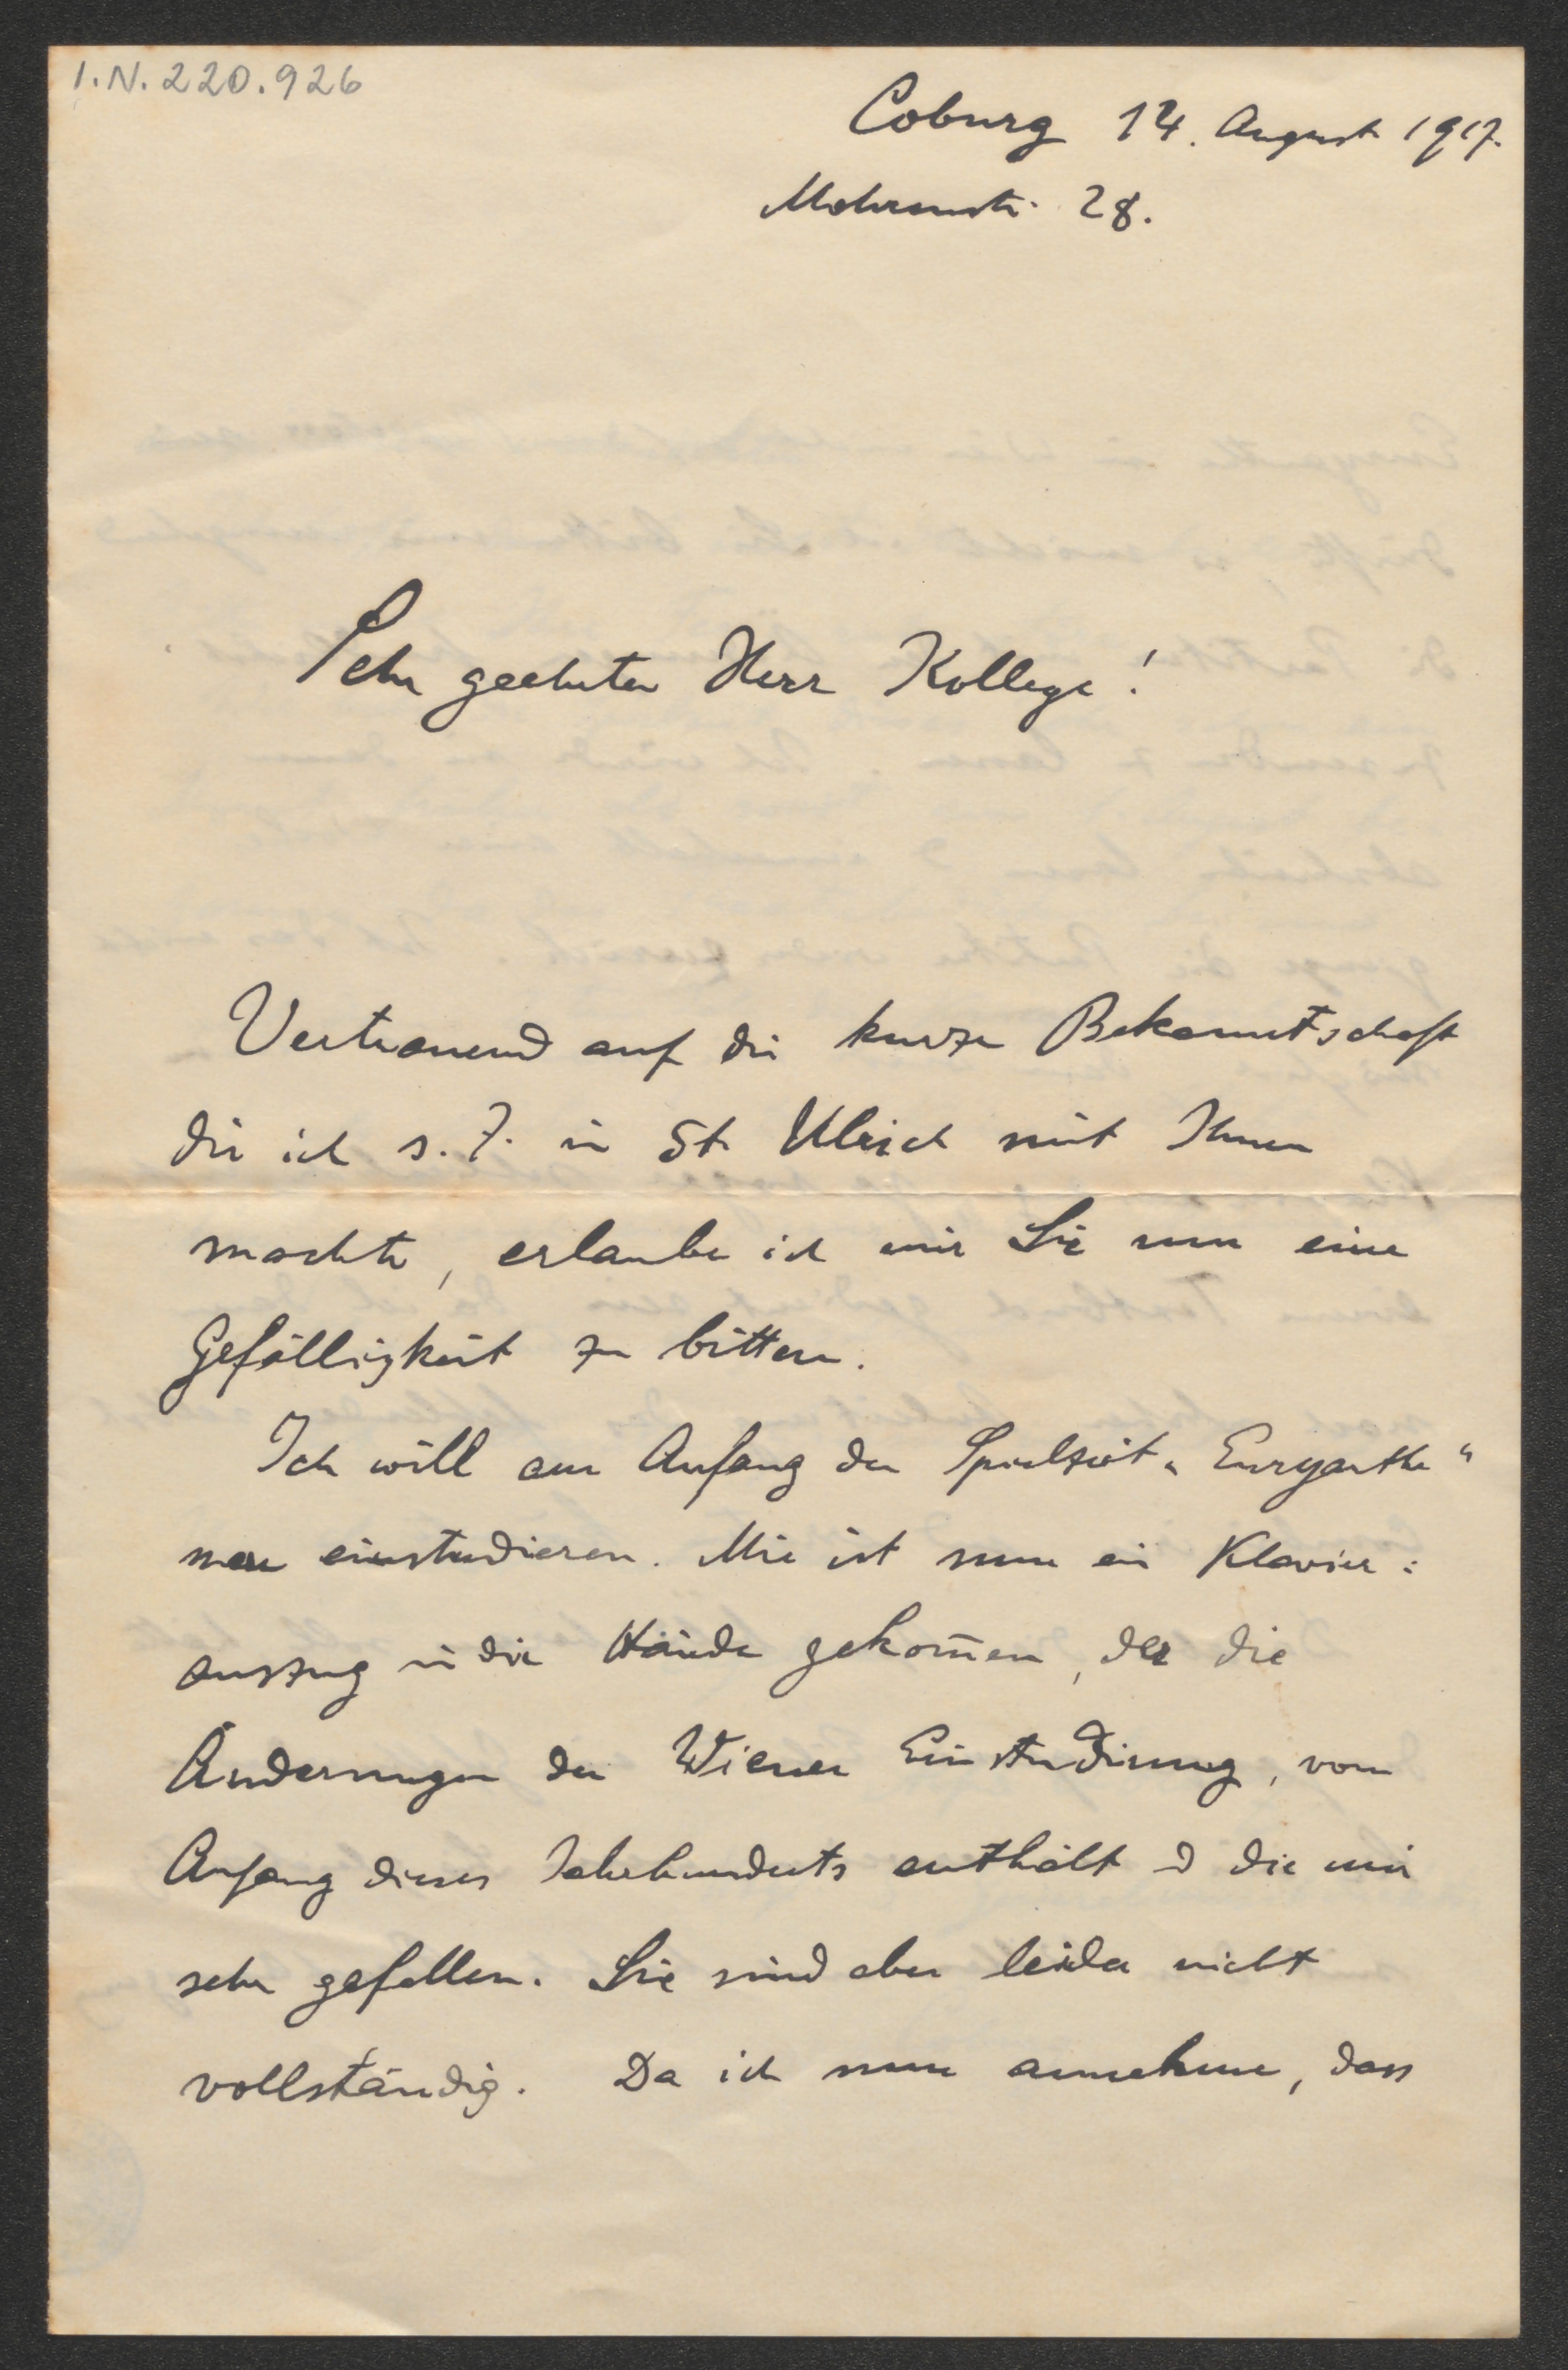 I.N. 220.926
Coburg 14. August 1917.
Mohrenstr. 28.
Sehr geehrter Herr Kollege!
Vertrauend auf die kurze Bekanntschaft
die ich s. Z. in St. Ulrich mit Ihnen
machte, erlaube ich mir Sie um eine
Gefälligkeit zu bitten.
Ich will am Anfang der Spielzeit „Euryanthe“
neu einstudieren. Mir ist nun ein Klavier:
auszug in die Hände gekom̄en, der die
Änderungen der Wiener Einstudirung, vom
Anfang dieses Jahrhunderts enthält u die mir
sehr gefallen. Sie sind aber leider nicht
vollständig. Da ich nun annehme, dass